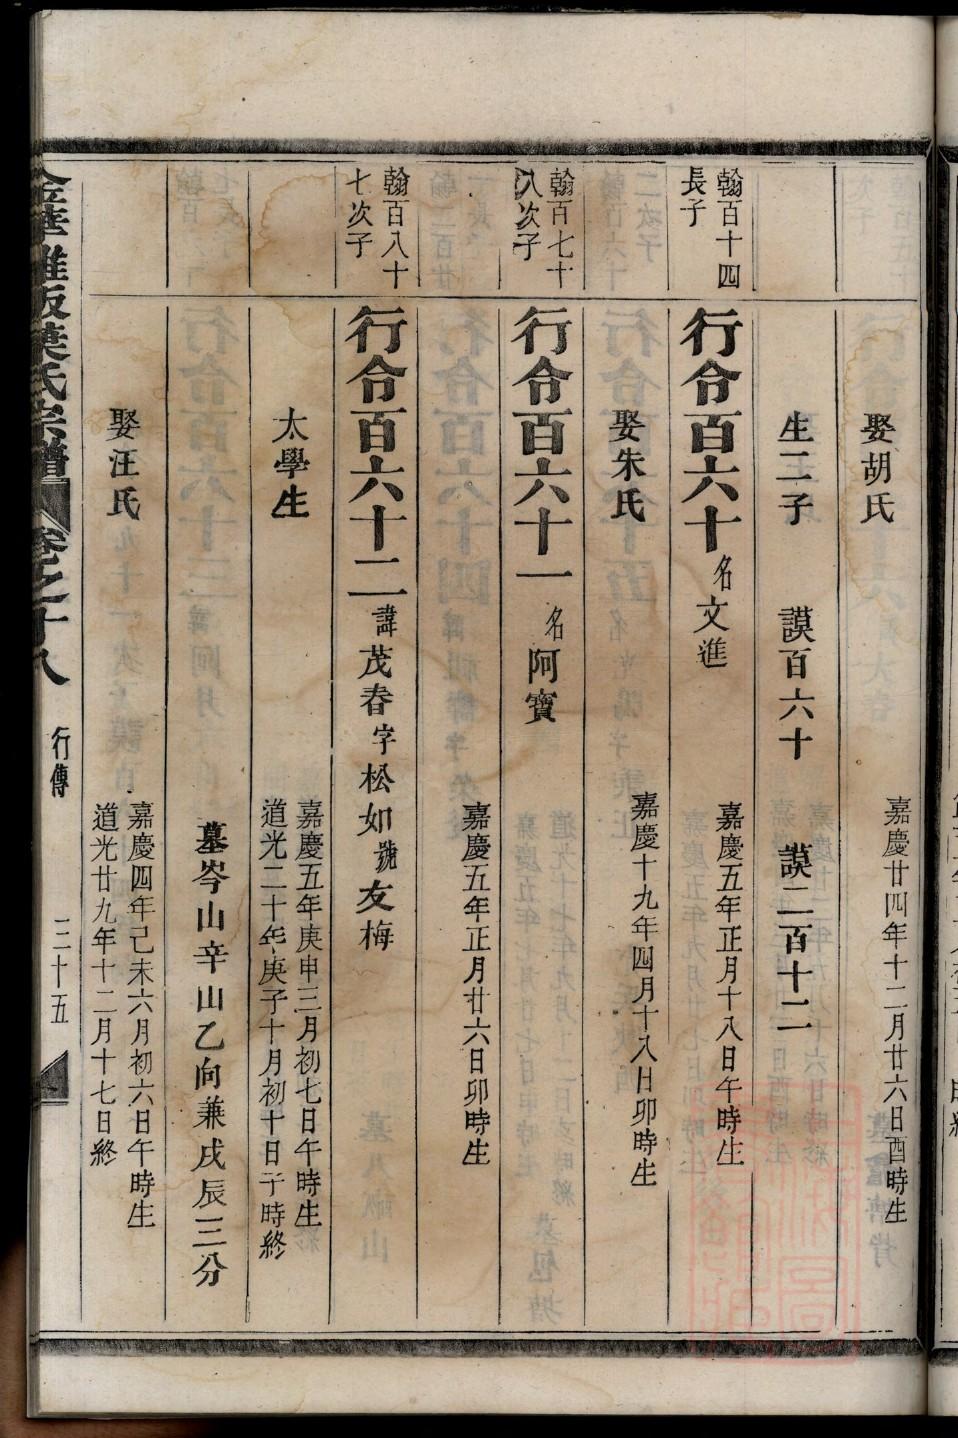 娶胡氏
嘉慶廿四年十二月廿六日酉時生
生二子 謨百六十 謨二百十二
翰百十四
長子
行令百六十名文進
嘉慶五年正月十八日午時生
娶朱氏
嘉慶十九年四月十八日卯時生
翰百七十
八次子
行令百六十一名阿寶
嘉慶五年正月廿六日卯時生
翰百八十
七次子
行令百六十二諱茂春字松如號友梅
太學生
嘉慶五年庚申三月初七日午時生
道光二十年庚子十月初十日子時終
墓岑山辛山乙向兼戌辰三分
娶汪氏
嘉慶四年己未六月初六日午時生
道光廿九年十二月十七日終
金華雅畈葉氏宗譜 卷之十八 行傳 三十五